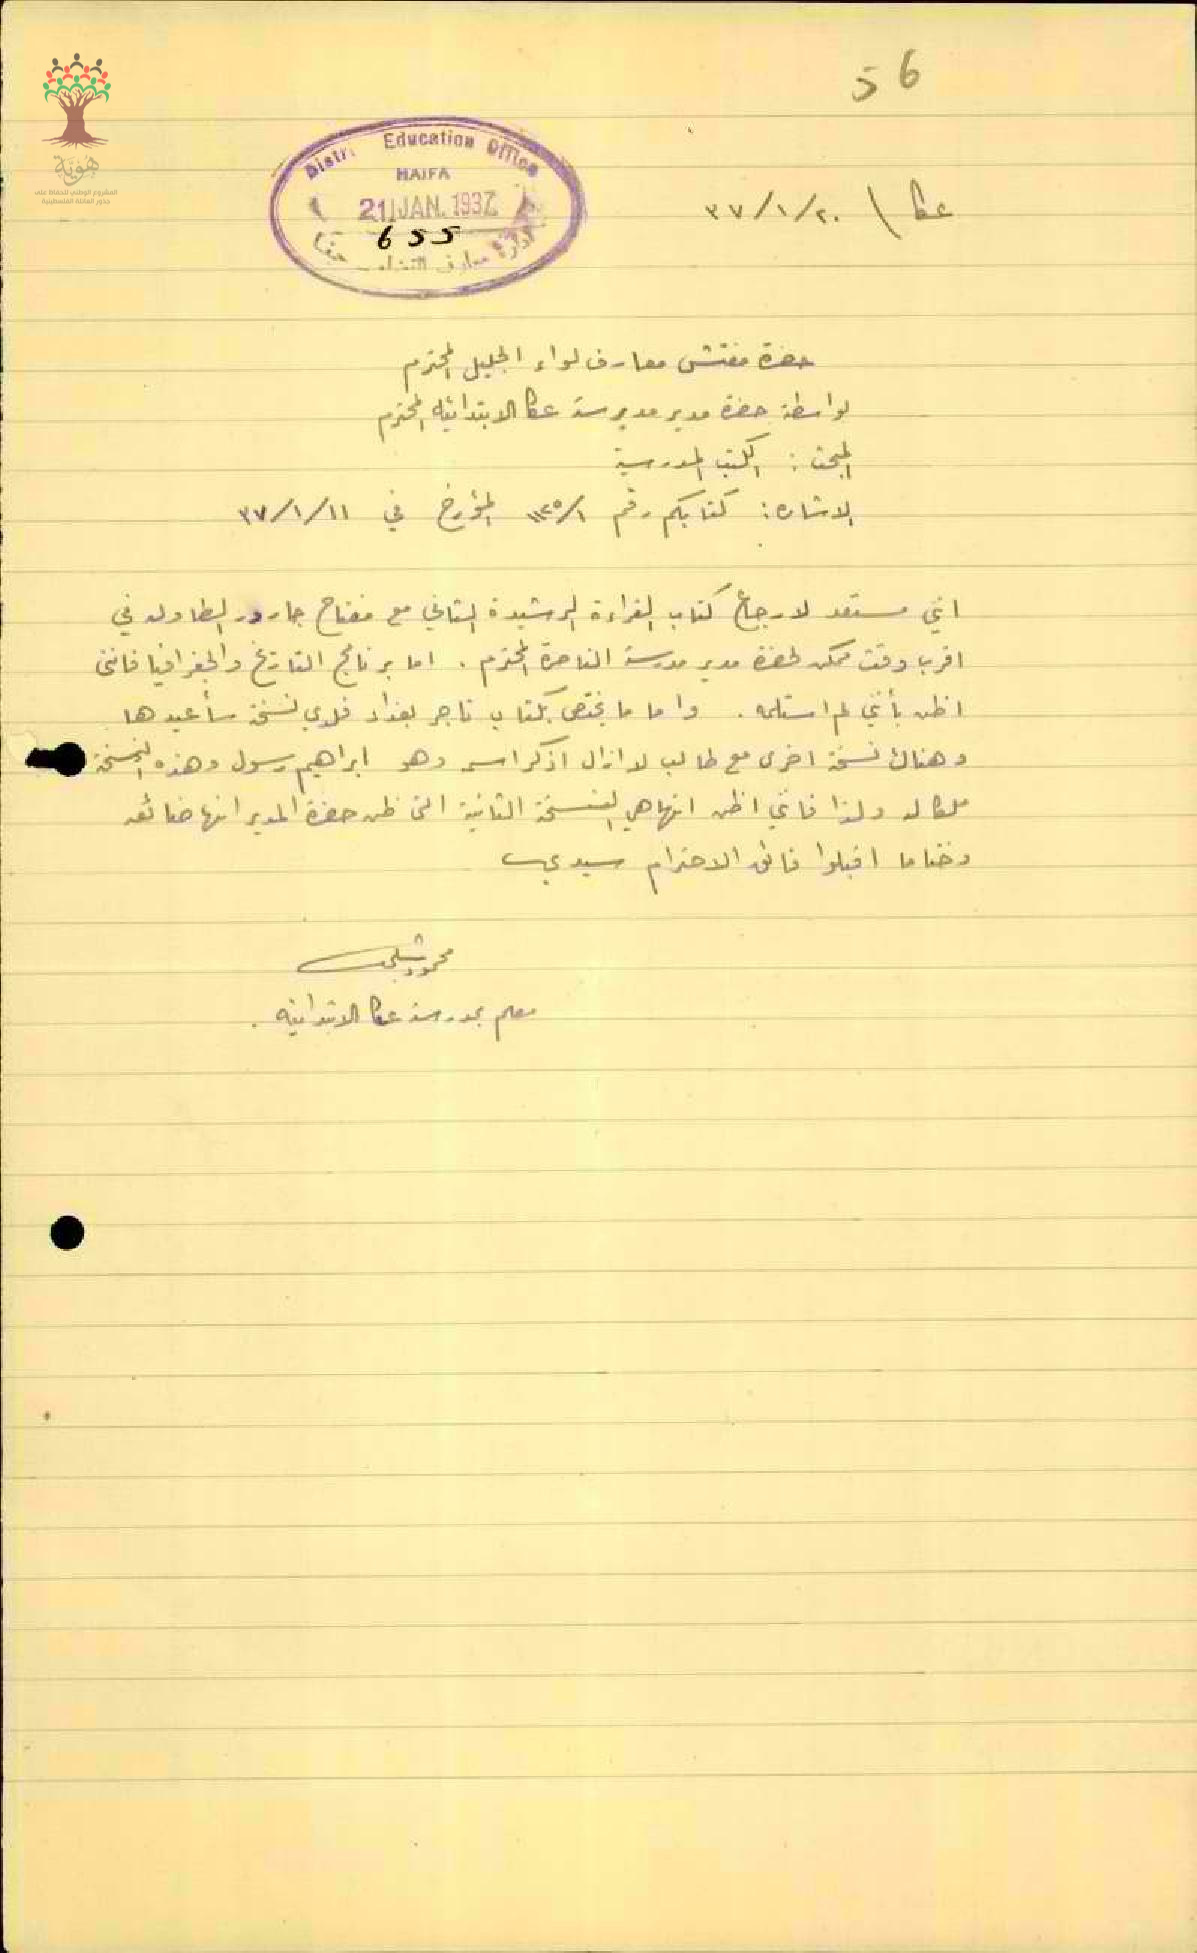 56
هوية
المشروع الوطني للحفاظ على
جذور العائلة الفلسطينية
Distri Education Office
HAIFA
21 JAN. 1937
655
ادارة معارف القضاء حيفا
عكا / ٢٠/١/٣٧
حضرة مفتش معارف لواء الجليل المحترم
بواسطة حضرة مدير مدرسة عكا الابتدائيه المحترم
المبحث : الكتب المدرسية
الاشاره : كتابكم رقم المؤرخ في ١١/١/٣٧
انني مستعد لارجاع كتاب القراءة الرشيدة الثاني مع مفتاح جارور الطاوله في
اقرب وقت ممكن لحضرة مدير مدرسة الناصرة المحترم . اما برنامج التاريخ والجغرافيا فانني
اظن بأنني لم استلمه . واما ما يختص بكتاب تاجر بغداد فلدي نسخة سأعيدها
وهناك نسخة اخرى مع طالب لا ازال اذكر اسمه وهو ابراهيم رسول وهذه النسخة
ملكا له ولذا فانني اظن انها هي النسخة الثانية التي ظن حضرة المدير انها ضائعه
وختاما اقبلوا فائق الاحترام سيدي
محمود
معلم بمدرسة عكا الابتدائيه .